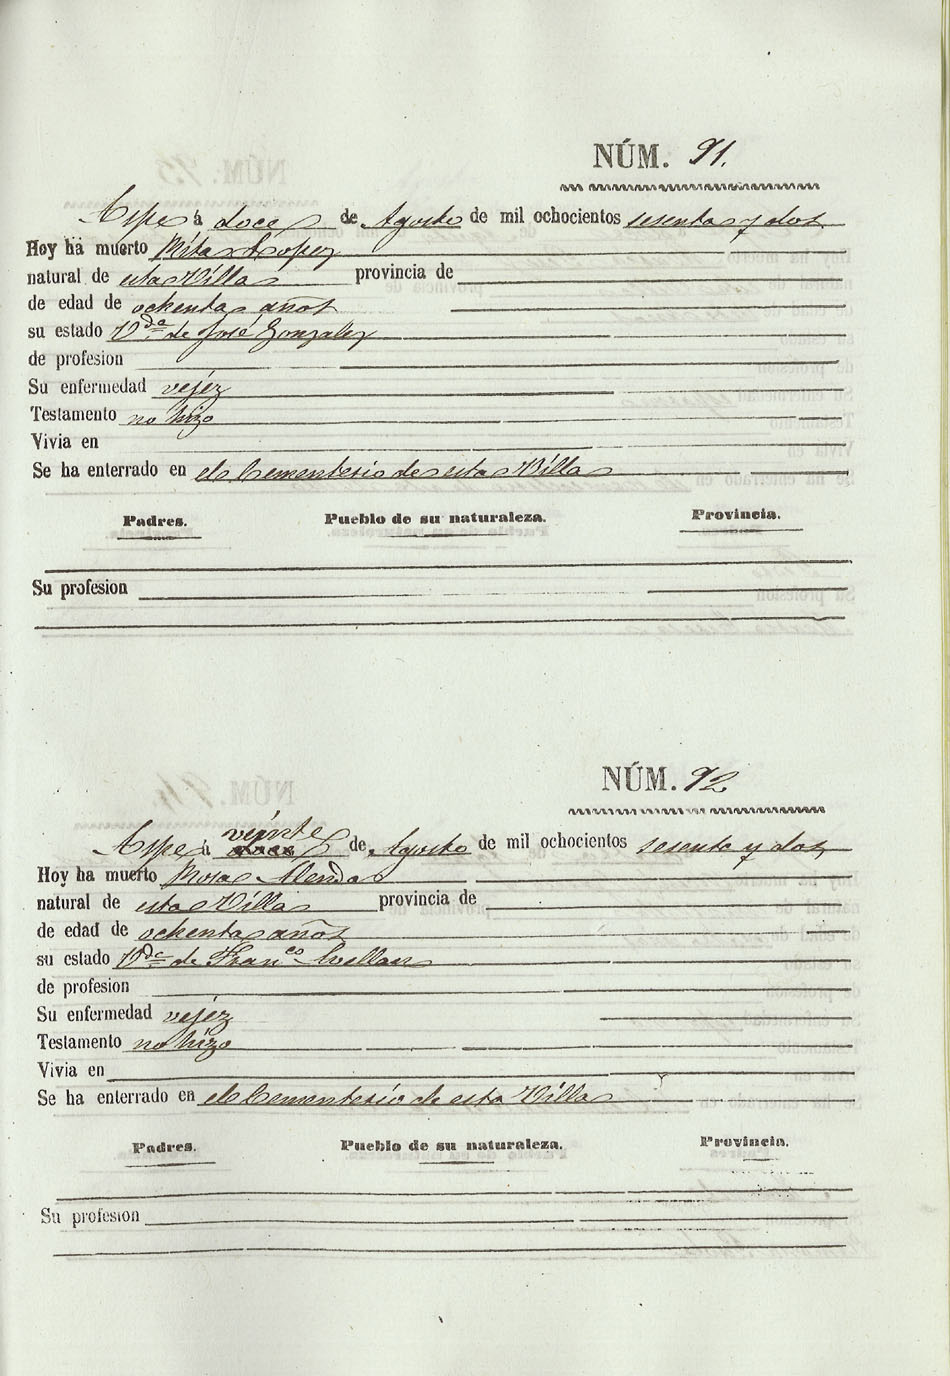 NÚM. 91.
Aspe á doce de Agosto de mil ochocientos sesenta y dos
Hoy há muerto Rita Lopez
natural de esta Villa provincia de
de edad de ochenta años
su estado Vda de José Gonzalez
de profesion
Su enfermedad vejéz
Testamento no hizo
Vivia en
Se ha enterrado en el Cementerio de esta Villa
Padres. Pueblo de su naturaleza. Provincia.
Su profesion
NÚM. 92
Aspe á veinte de Agosto de mil ochocientos sesenta y dos
Hoy há muerto Rosa
natural de esta Villa provincia de
de edad de ochenta años
su estado Vda de Franco Avellan
de profesion
Su enfermedad vejéz
Testamento no hizo
Vivia en
Se ha enterrado en el Cementerio de esta Villa
Padres. Pueblo de su naturaleza. Provincia.
Su profesion